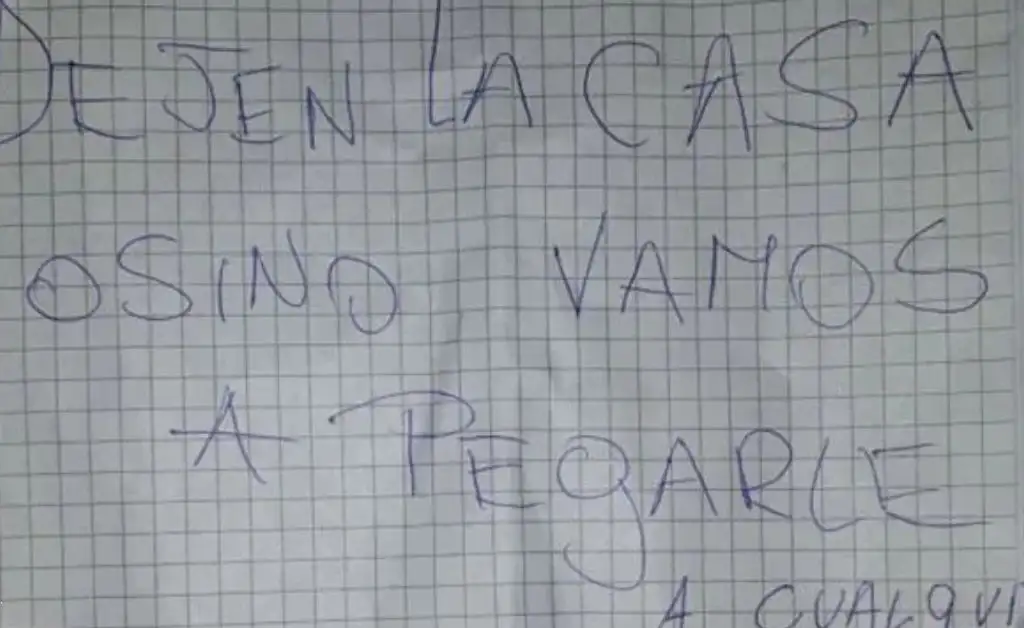 DEJEN LA CASA
OSINO VAMOS
A PEgARLE
A CUALQUI